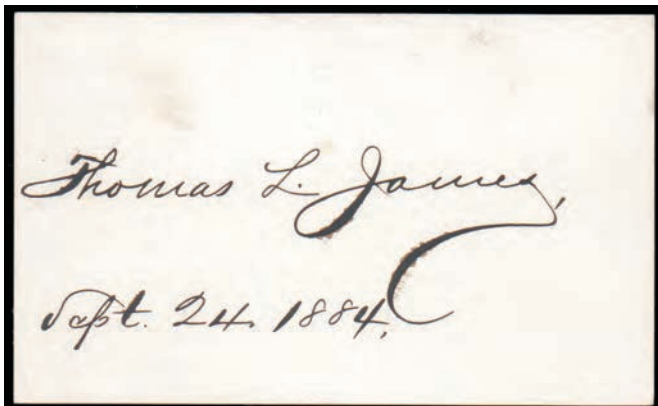 Thomas L. James,
Sept. 24. 1884.